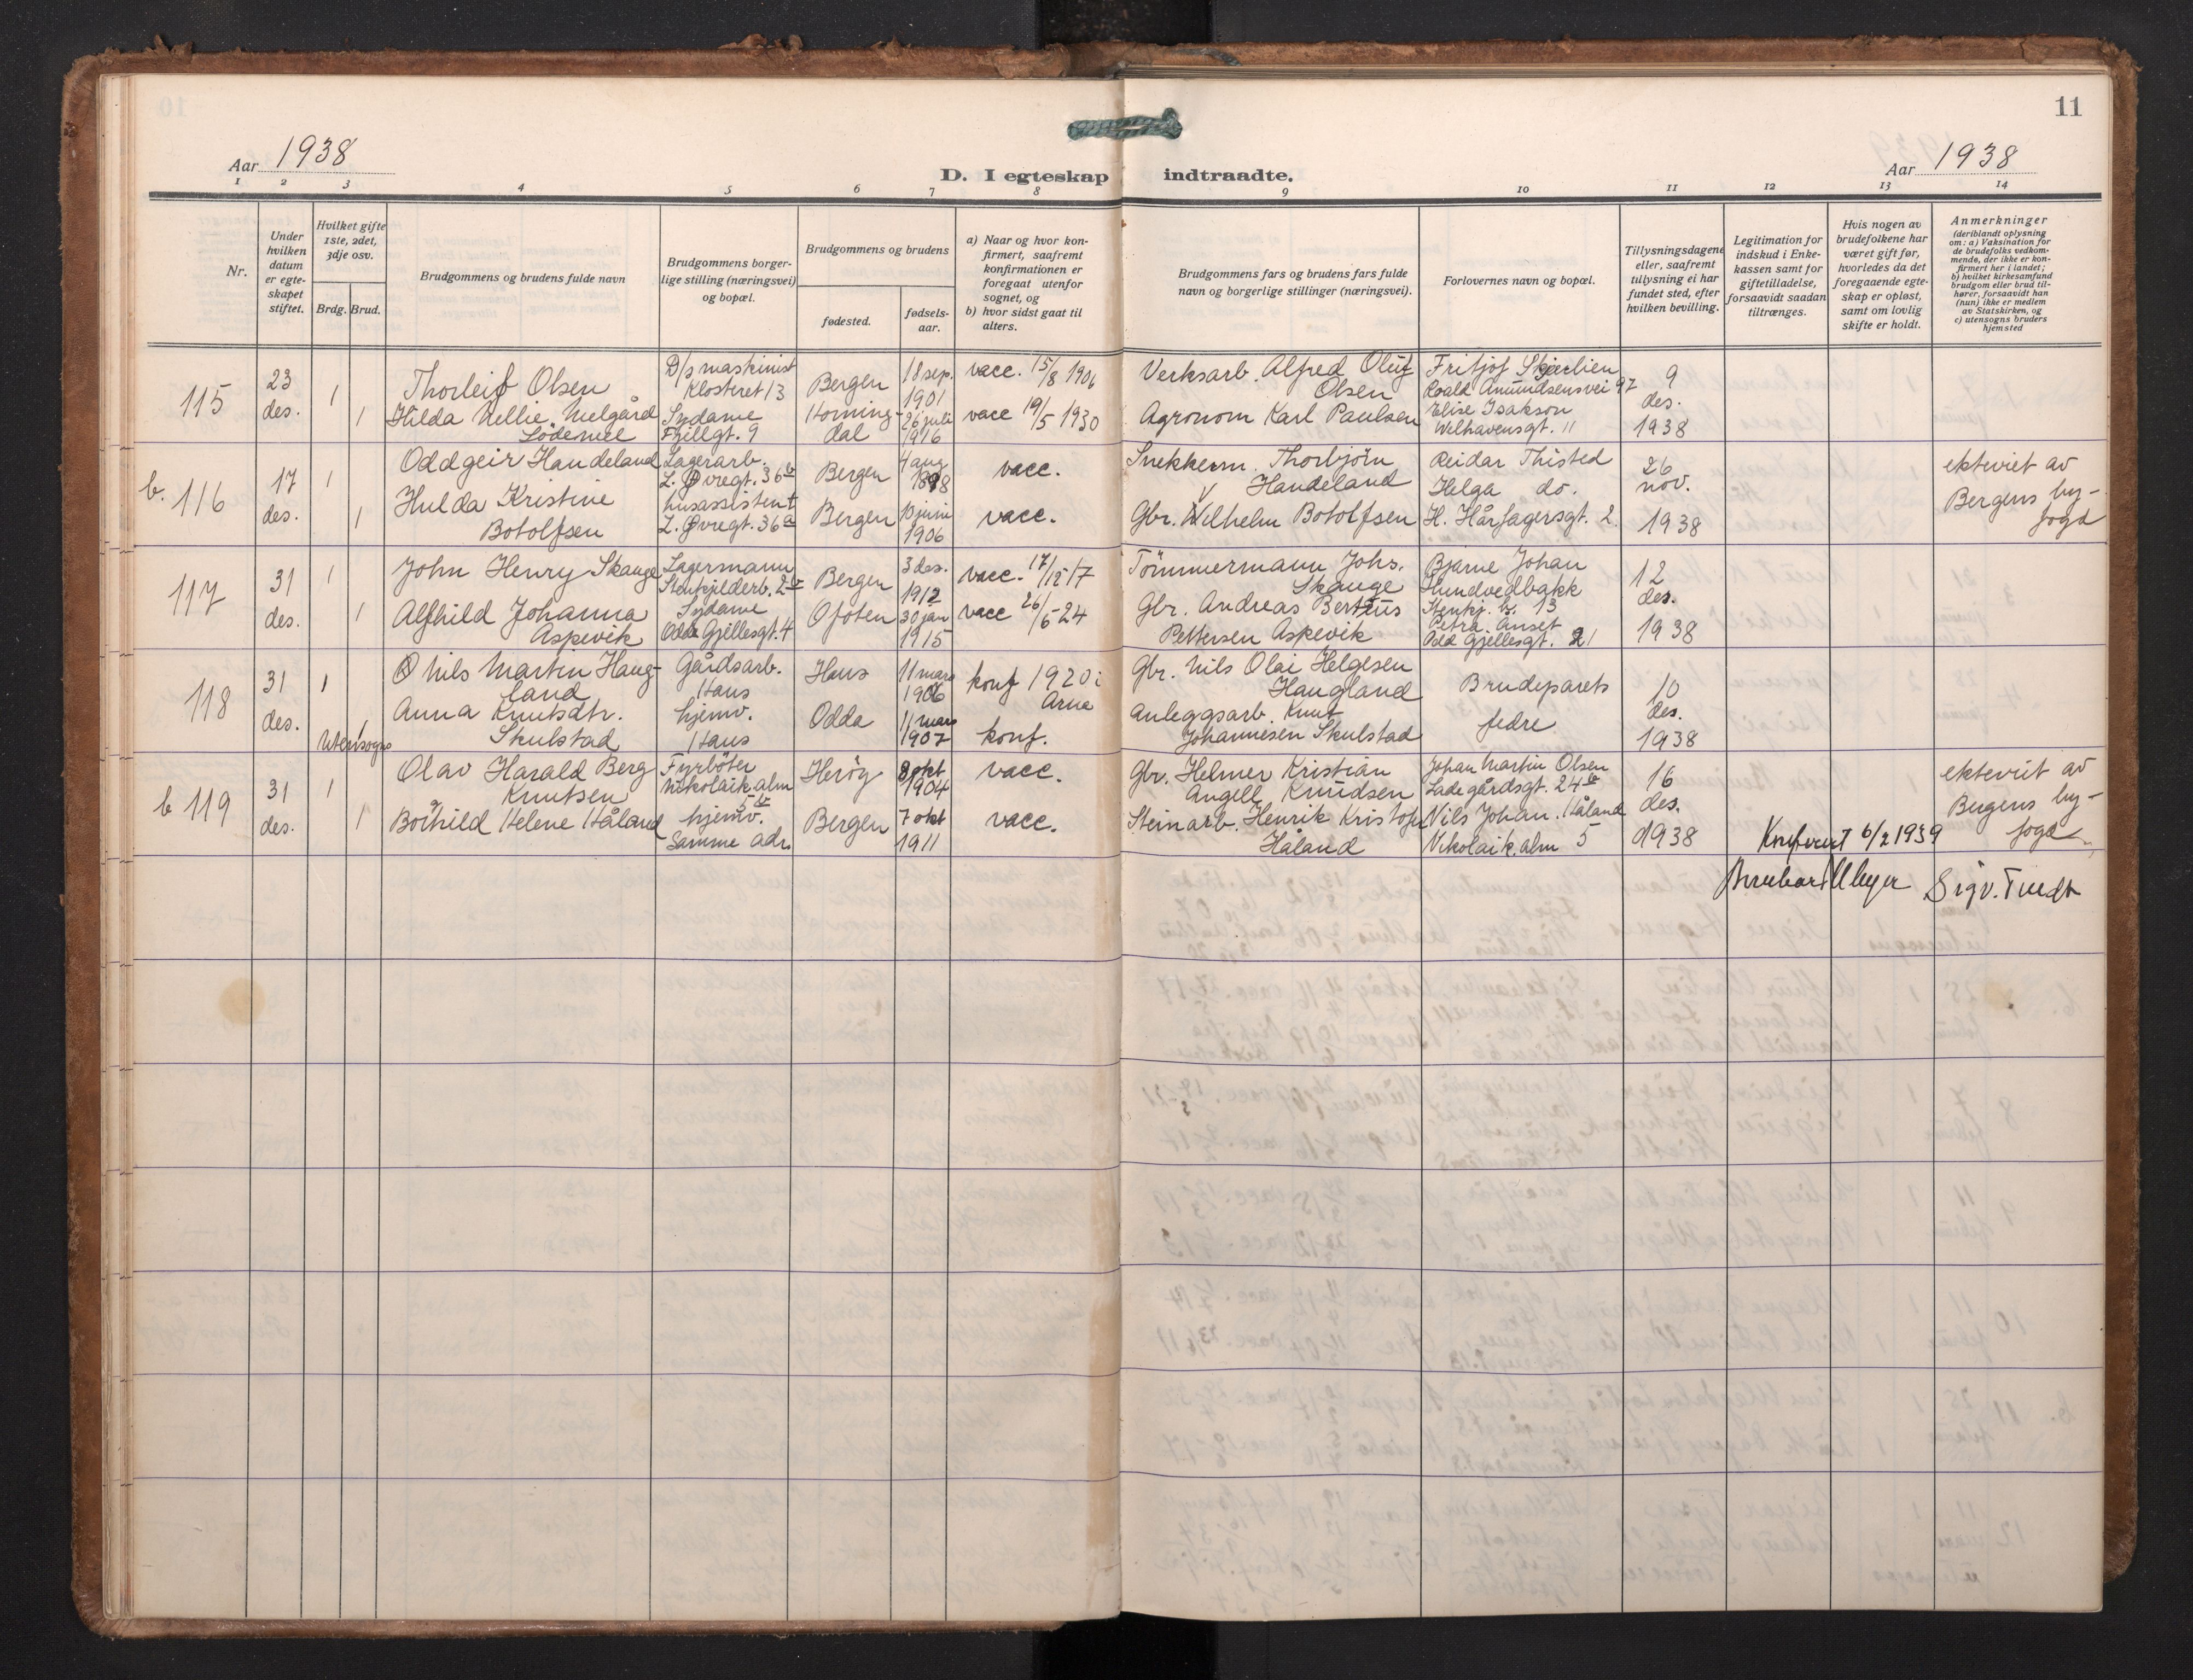 11
Aar 1938
D. I egteskap indtraadte.
Aar 1938
1 2 3 4 5 6 7 8 9 10 11 12 13 14
Nr.
Under hvilken datum er egteskapet stiftet.
Hvilket gifte 1ste, 2det, 3dje osv.
Brdg. Brud.
Brudgommens og brudens fulde navn
Brudgommens borgerlige stilling (næringsvei) og bopæl.
Brudgommens og brudens
fødested.
fødselsaar.
a) Naar og hvor konfirmert, saafremt konfirmationen er foregaat utenfor sognet, og
b) hvor sidst gaat til alters.
Brudgommens fars og brudens fars fulde navn og borgerlige stillinger (næringsvei).
Forlovernes navn og bopæl.
Tillysningsdagene eller, saafremt tillysning ei har fundet sted, efter hvilken bevilling.
Legitimation for indskud i Enkekassen samt for giftetilladelse, forsaavidt saadan tiltrænges.
Hvis nogen av brudefolkene har været gift før, hvorledes da det foregaaende egteskap er opløst, samt om lovlig skifte er holdt.
Anmerkninger (deriblandt oplysning om: a) Vaksination for de brudefolks vedkommende, der ikke er konfirmert her i landet; b) hvilket kirkesamfund brudgom eller brud tilhører, forsaavidt han (hun) ikke er medlem av Statskirken, og c) utensogns bruders hjemsted
115
23 des.
1
1
Thorleif Olsen
D/s maskinist Klosteret 13
Bergen
18 sep. 1901
vacc. 15/8 1906
Verksarb. Alfred Oluf Olsen
Fritjof Skjerlien Roald Amundsensvei 97
9 des. 1938
Hilda Nellie Melgård Lödemel
Sydame Fjellgt. 9
Horningdal
26 juli 1916
vacc 19/5 1930
Agronom Karl Paulsen
Elise Isakson Welhavensgt. 11
b. 116
17 des.
1
1
Oddgeir Handeland
Lagerarb. L. Øvregt. 36b
Bergen
4 aug 1898
vacc.
Snekkerm. Thorbjörn Handeland
Reidar Thisted
26 nov. 1938
ekteviet av Bergens byfogd
Hulda Kristine Botolfsen
husassistent L. Øvregt. 36a
Bergen
10 juni 1906
vacc.
Gbr. Vilhelm Botolfsen
Helga do. H. Hårfagersgt. 2.
117
31 des.
1
1
John Henry Skauge
Lagermann Stenkjelderb. 2b
Bergen
3 des. 1912
vacc. 17/12 17
Tömmermann Johs. Skauge
Bjarne Johan Hundvedbakk Stenkj. b. 13
12 des. 1938
Alfhild Johanna Askevik
Sydame Odd Gjellesgt. 4
Ofoten
30 jan 1915
vacc 26/6 - 24
Gbr. Andreas Bertius Pettersen Askevik
Petra Anset Odd Gjellesgt. 21
118
31 des.
1
1
utensogns
Nils Martin Haugland
Gårdsarb. Haus
Haus
11 mars 1906
konf 1920 i Arna
Gbr. Nils Olai Helgesen Haugland
Brudeparets fedre
10 des. 1938
Anna Knutsdtr. Skulstad
hjemv. Haus
Odda
11 mars 1907
konf.
Anleggsarb. Knut Johannesen Skulstad
b 119
31 des.
1
1
Olav Harald Berg Knutsen
Fyrböter Nikolaik.alm 5b
Heröy
8 okt 1904
vacc.
Gbr. Helmer Kristian Angell Knudsen
Johan Martin Olsen Ladegårdsgt. 24b
16 des. 1938
ekteviet av Bergens byfogd
Borhild Helene Håland
hjemv. Samme adr.
Bergen
7 okt 1911
vacc.
Steinarb. Henrik Kristofer Håland
Nils Johan. Håland Nikolaik.alm 5
Konferert 6/2 1939
Bernhard Meyer Sigv. Tvedt